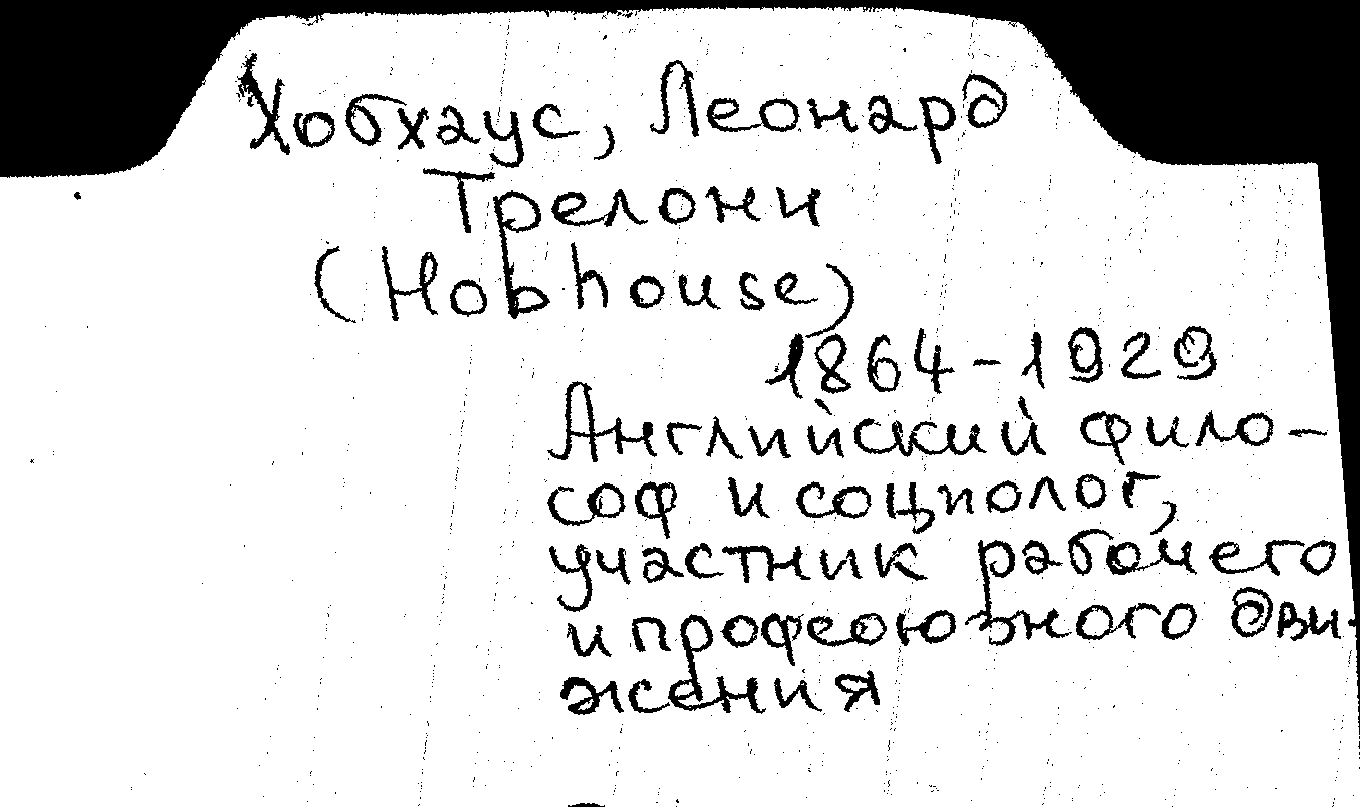 Хобхаус, Леонард
Трелони
(Hobhouse)
1864-1929
Английский фило-
соф и социолог,
участник рабочего
и профсоюзного дви-
жения